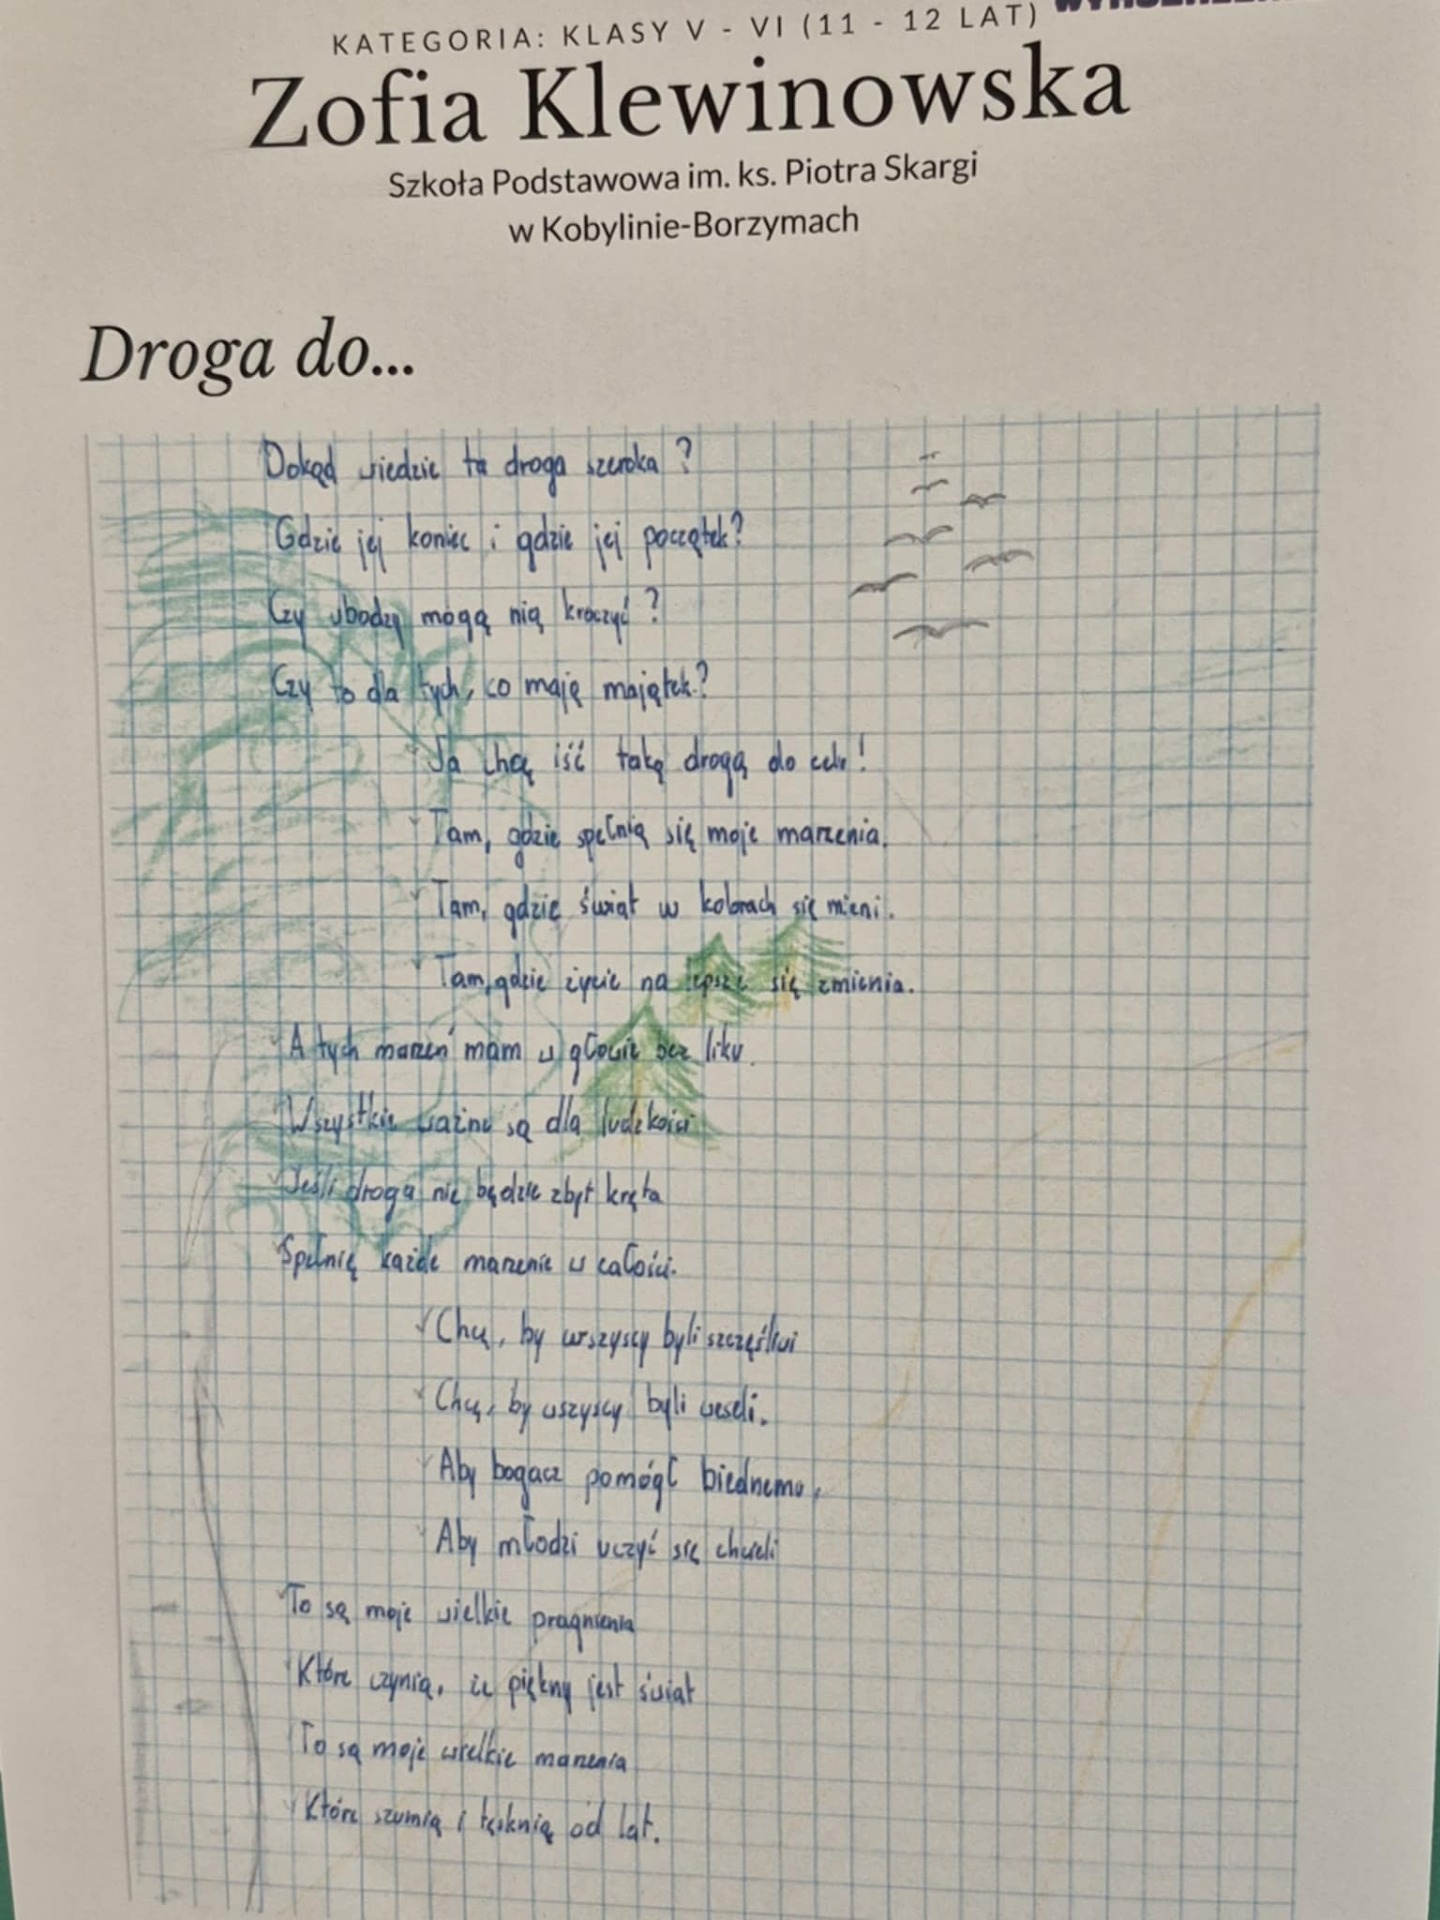 KATEGORIA: KLASY V - VI (11 - 12 LAT)
Zofia Klewinowska
Szkoła Podstawowa im. ks. Piotra Skargi
w Kobylinie-Borzymach
Droga do...
Dokąd wiedzie ta droga szeroka?
Gdzie jej koniec i gdzie jej początek?
Czy ubodzy mogą nią kroczyć?
Czy to dla tych, co mają majątek?
Ja chcę iść taką drogą do celu!
Tam, gdzie spełnią się moje marzenia.
Tam, gdzie świat w kolorach się mieni.
Tam, gdzie życie na lepsze się zmienia.
A tych marzeń mam w głowie bez liku.
Wszystkie ważne są dla ludzkości
Jeśli droga nie będzie zbyt kręta
Spełnię każde marzenie w całości.
Chcę, by wszyscy byli szczęśliwi
Chcę, by wszyscy byli weseli.
Aby bogacz pomógł biednemu,
Aby młodzi uczyć się chcieli
To są moje wielkie pragnienia
Które czynią, że piękny jest świat
To są moje wielkie marzenia
Które szumią i tęsknią od lat.